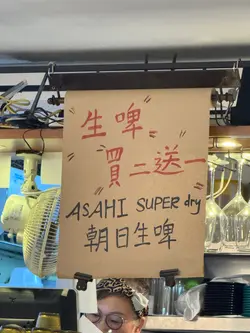 "生啤"
"買二送一"
ASAHI SUPER dry
朝日生啤